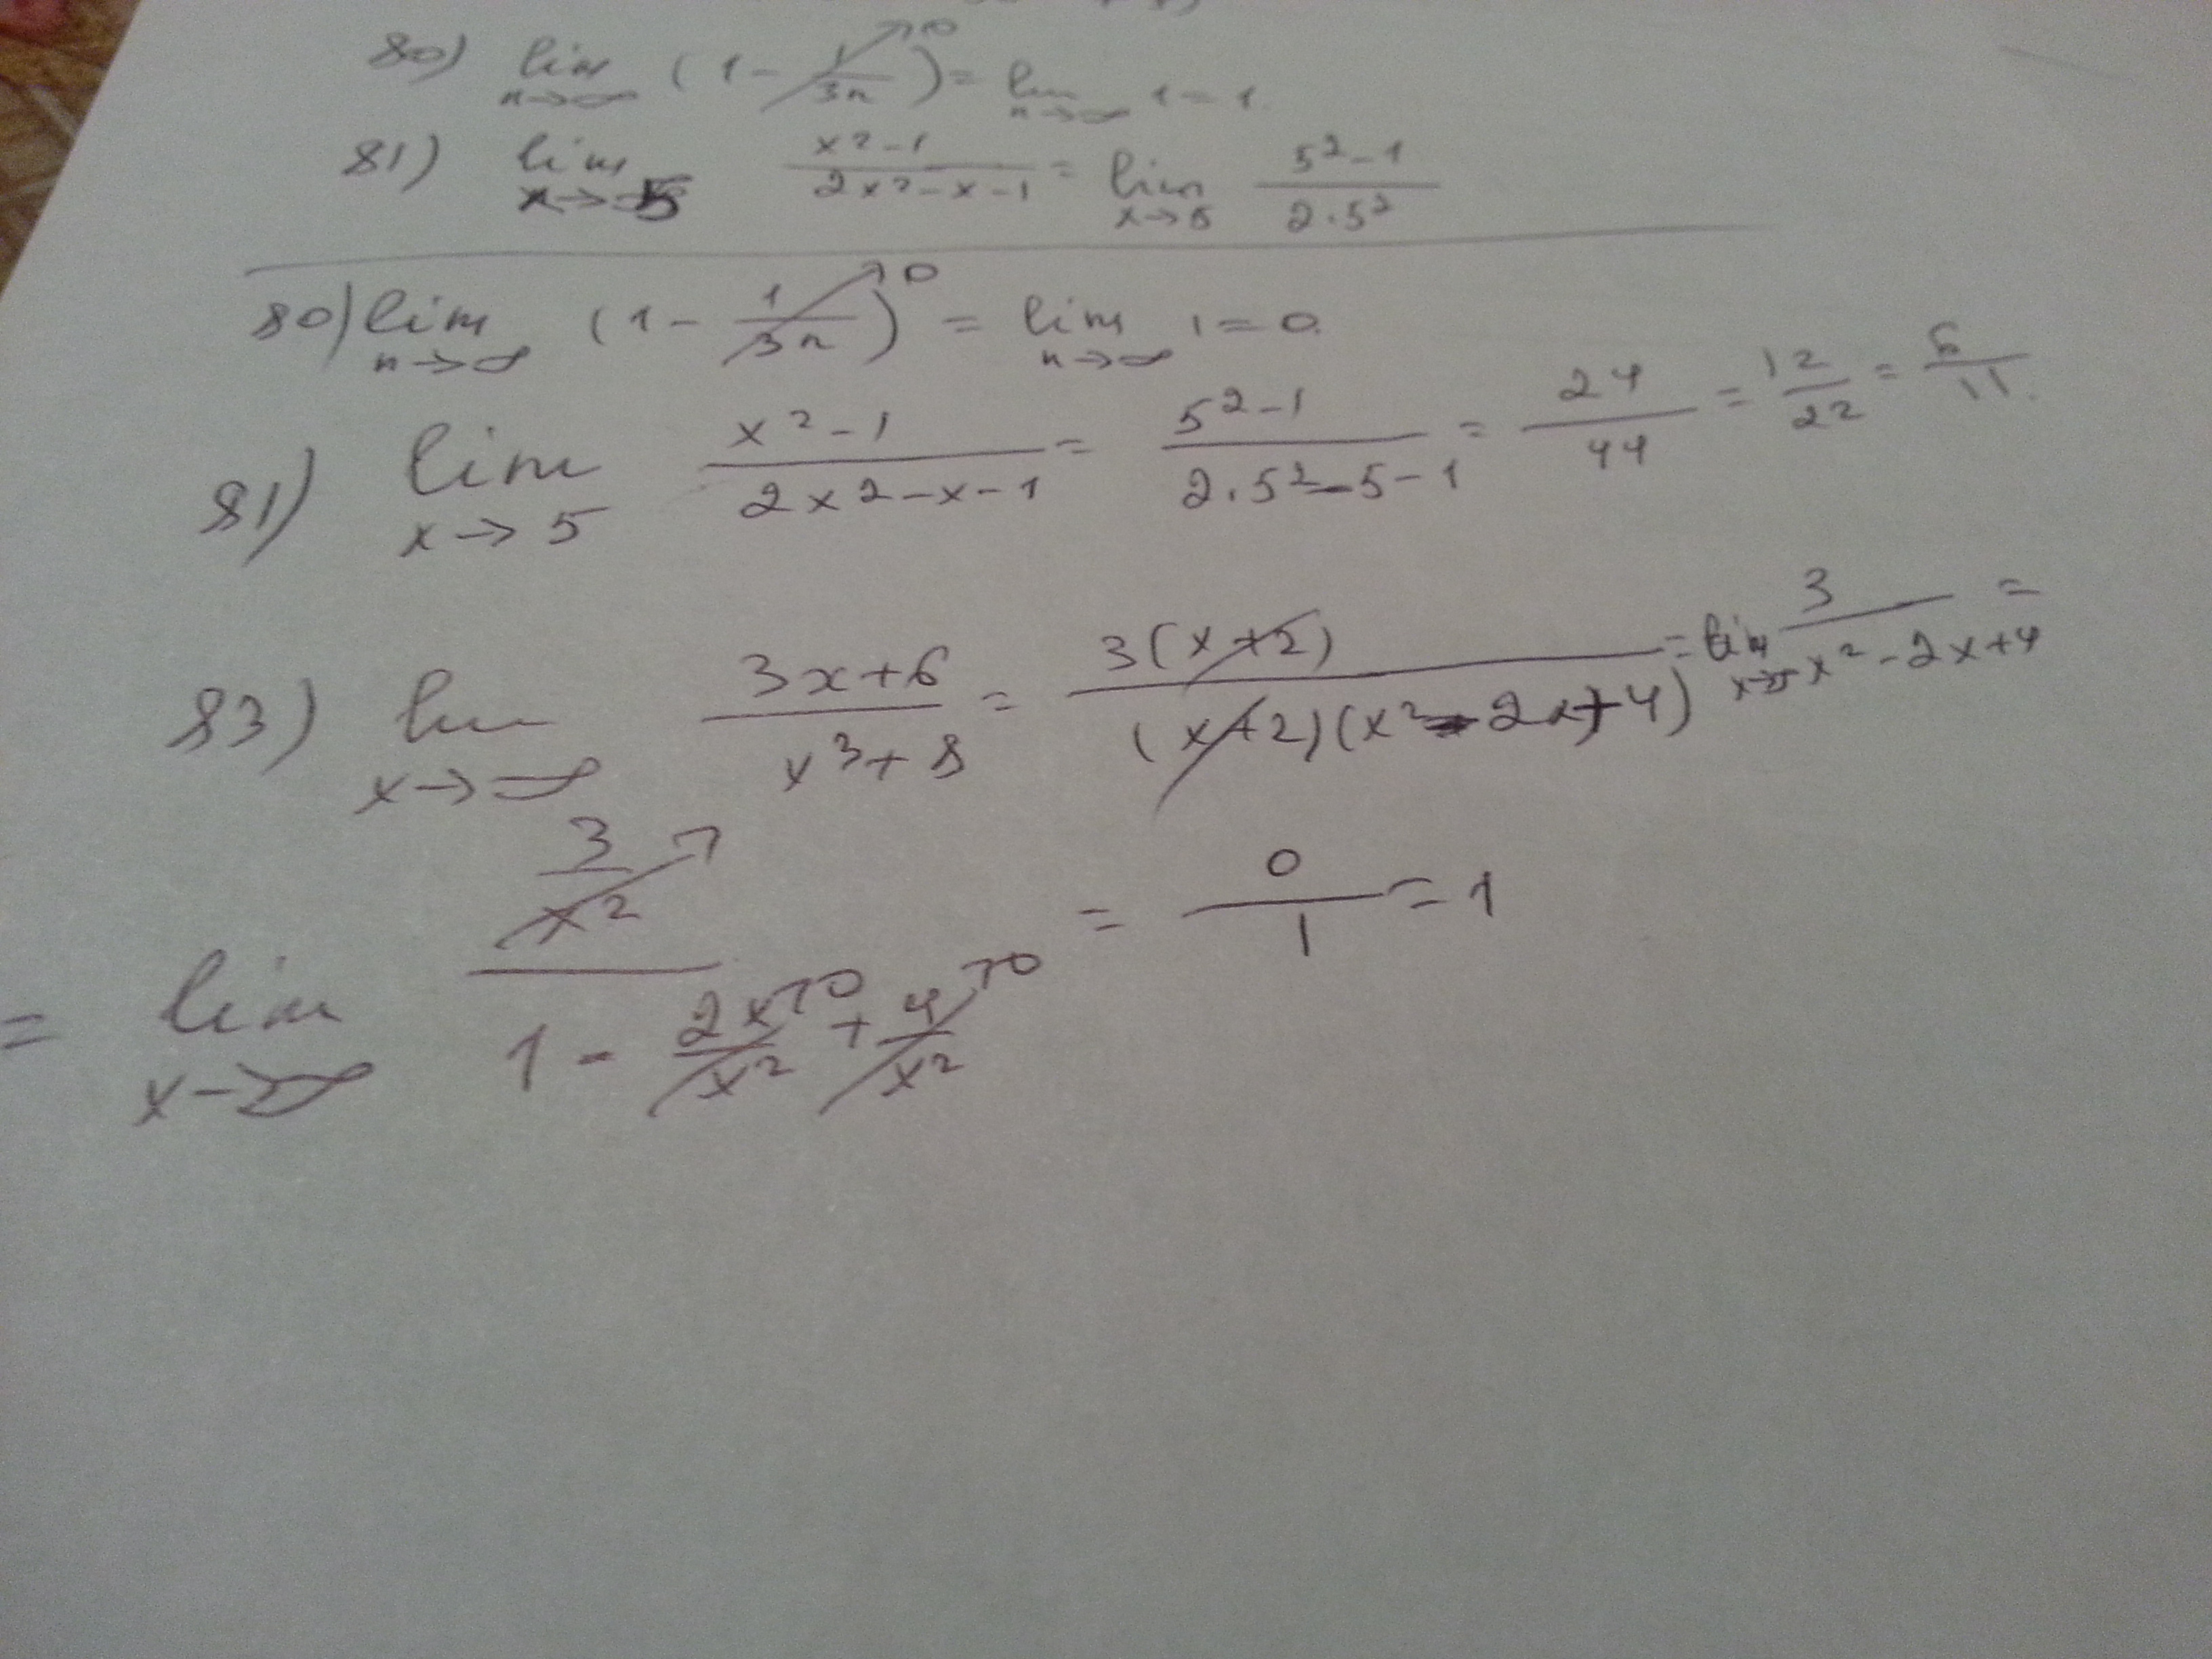 80) lim n→∞ (1 - 1/3n →0) = lim n→∞ 1 = 1.
81) lim x→5 (x²-1)/(2x²-x-1) = lim x→5 (5²-1)/(2·5²)
80) lim n→∞ (1 - 1/3n →0) = lim n→∞ 1 = 0.
81) lim x→5 (x²-1)/(2x²-x-1) = (5²-1)/(2·5²-5-1) = 24/44 = 12/22 = 6/11.
83) lim x→∞ (3x+6)/(x³+8) = 3(x+2)/((x+2)(x²-2x+4)) = lim x→∞ 3/(x²-2x+4) =
= lim x→∞ (3/x² →)/(1 - 2x/x² →0 + 4/x² →0) = 0/1 = 1